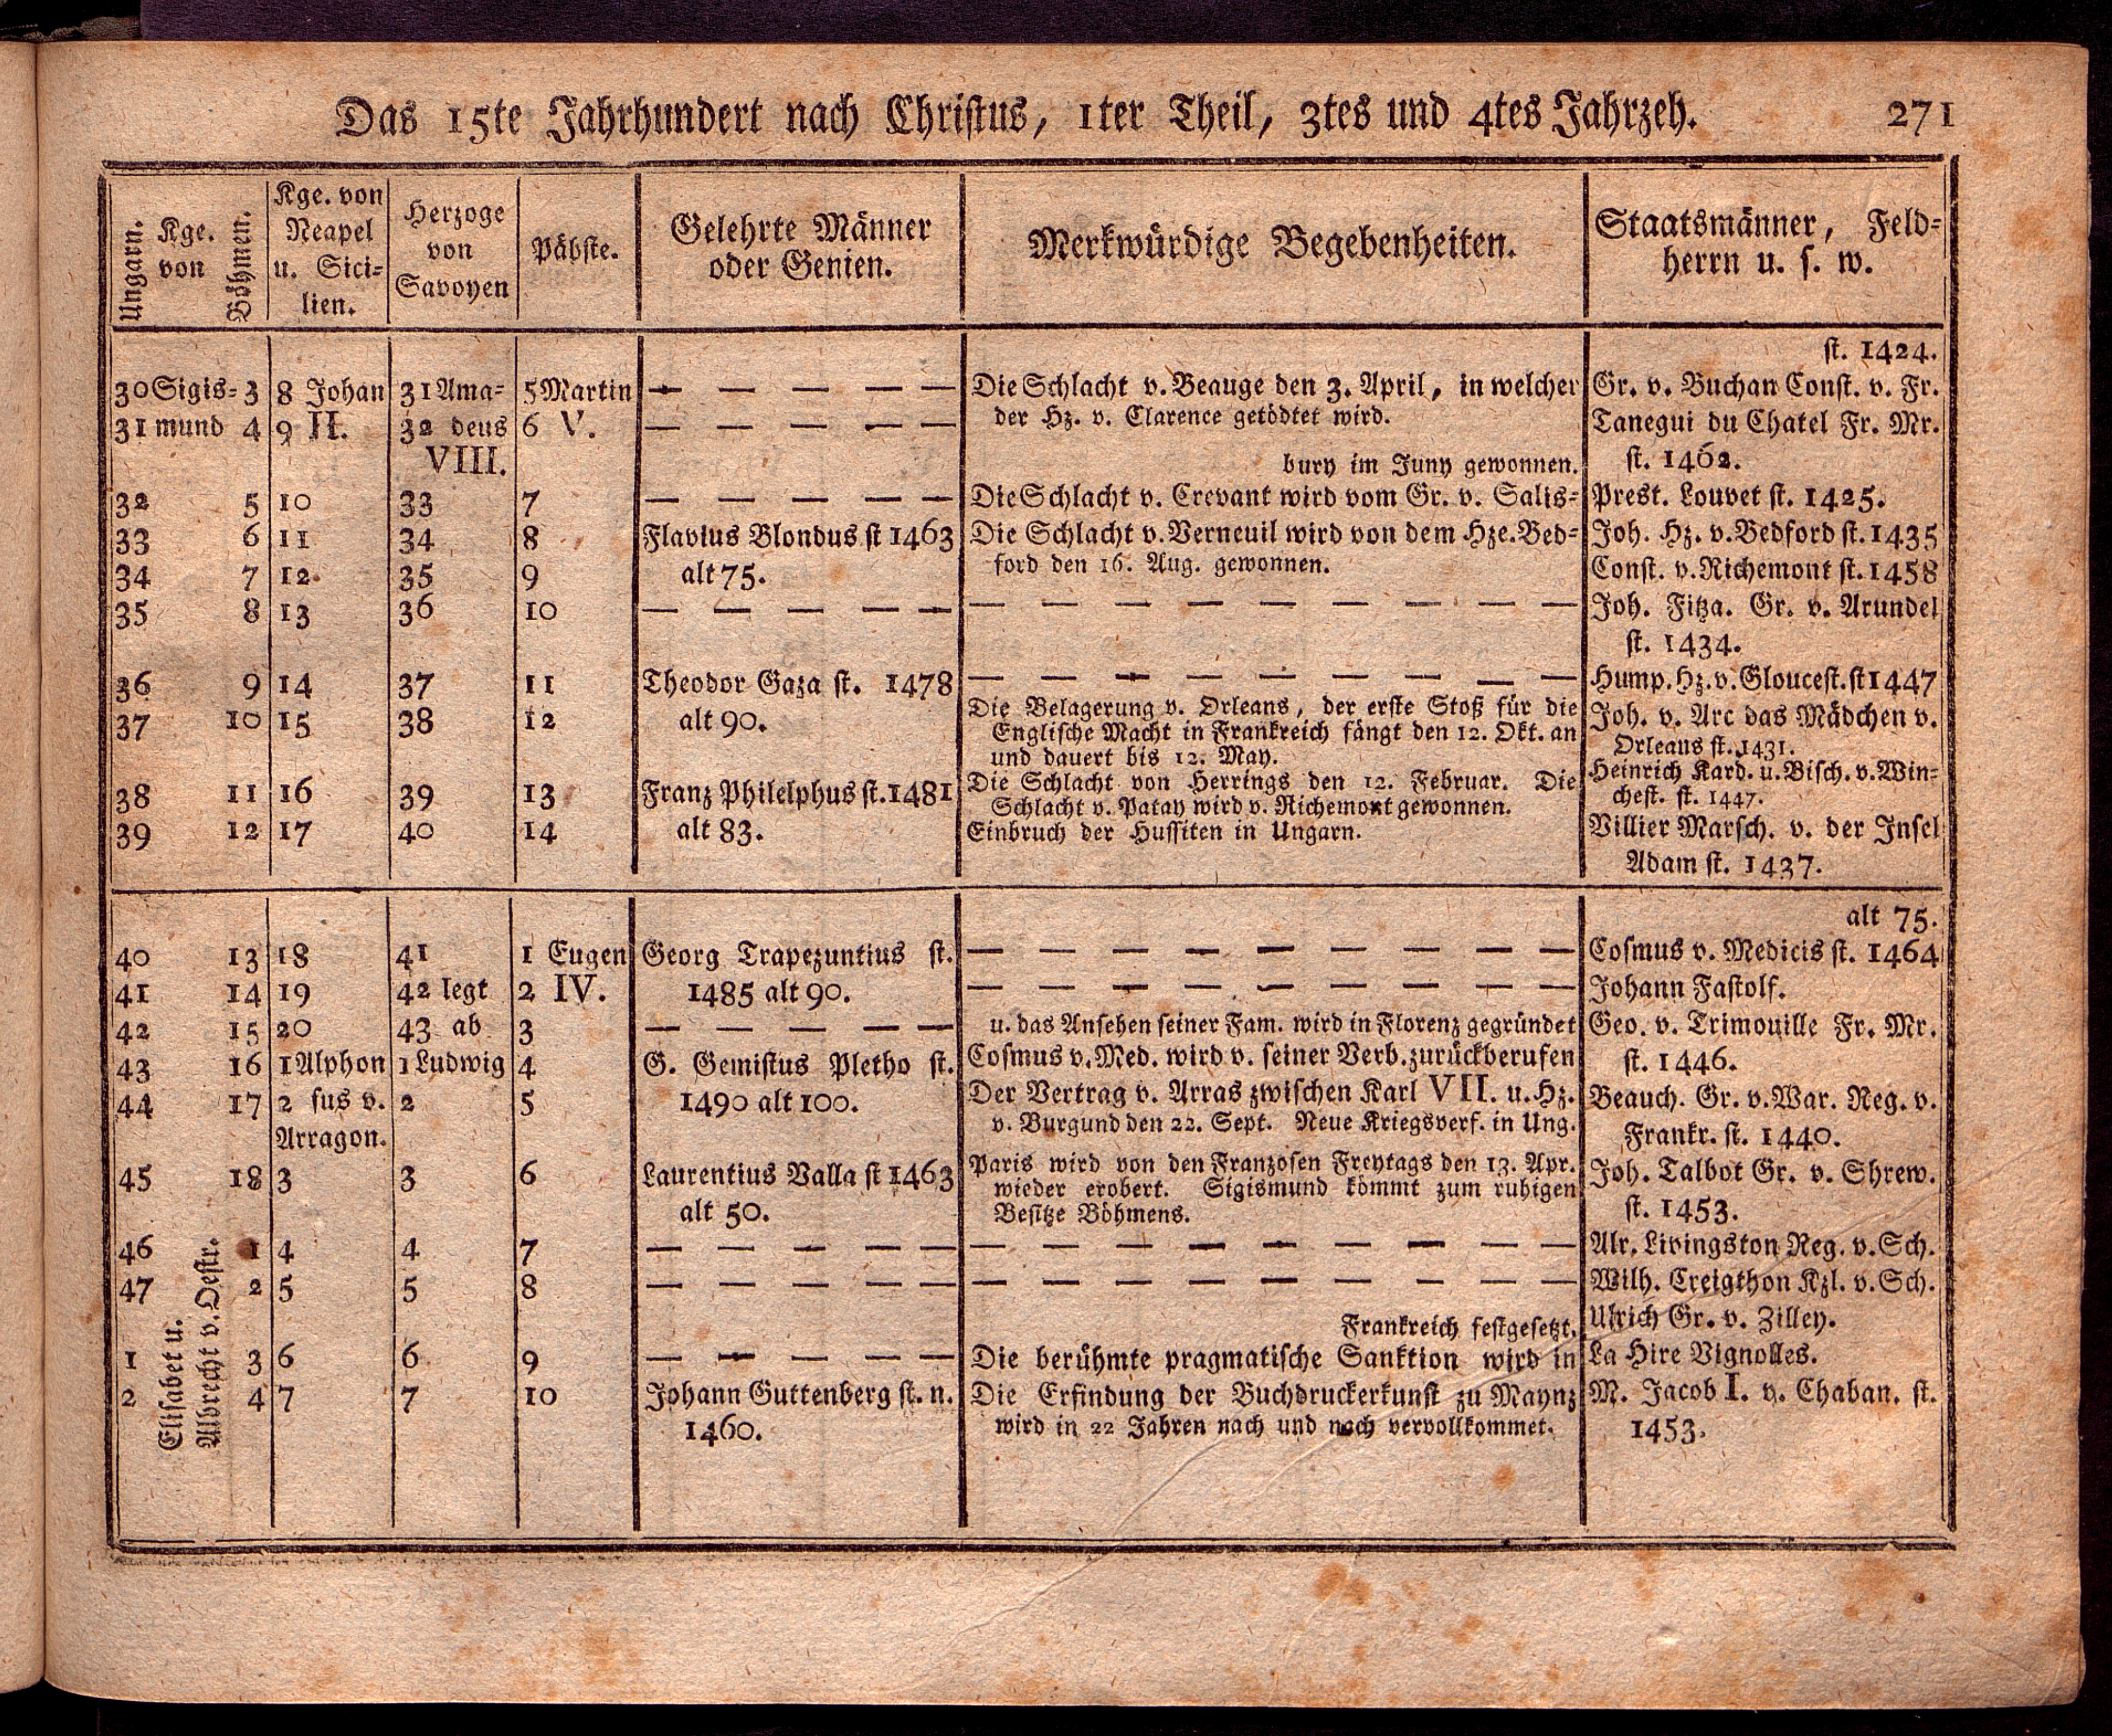 Das 15te Jahrhundert nach Christus, 1ter Theil, 3tes und 4tes Jahrzeh. 271
Ungarn. Kge. von Böhmen.
Kge. von
Neapel
u. Sici-
lien.
Herzoge
von
Savoyen
Päbste.
Gelehrte Männer
oder Genien.
Merkwürdige Begebenheiten.
Staatsmänner, Feld-
herrn u. s. w.
st. 1424.
30 Sigis- 3 8 Johan 31 Ama- 5 Martin — — — — — Die Schlacht v. Beauge den 3. April, in welcher Gr. v. Buchan Const. v. Fr.
31 mund 4 9 II. 32 deus 6 V. — — — — — der Hz. v. Clarence getödtet wird. Tanegui du Chatel Fr. Mr.
VIII. bury im Juny gewonnen. st. 1462.
32 5 10 33 7 — — — — — Die Schlacht v. Crevant wird vom Gr. v. Salis- Prest. Louvet st. 1425.
33 6 11 34 8 Flavius Blondus st 1463 Die Schlacht v. Verneuil wird von dem Hze. Bed- Joh. Hz. v. Bedford st. 1435
34 7 12 35 9 alt 75. ford den 16. Aug. gewonnen. Const. v. Richemont st. 1458
35 8 13 36 10 — — — — — — — — — — — — — — Joh. Fitza. Gr. v. Arundel
st. 1434.
36 9 14 37 11 Theodor Gaza st. 1478 — — — — — — — — — Hump. Hz. v. Gloucest. st 1447
37 10 15 38 12 alt 90. Die Belagerung v. Orleans, der erste Stoß für die Joh. v. Arc das Mädchen v.
Englische Macht in Frankreich fängt den 12. Okt. an Orleans st. 1431.
und dauert bis 12. May.
38 11 16 39 13 Franz Philelphus st. 1481 Die Schlacht von Herrings den 12. Februar. Die Heinrich Kard. u. Bisch. v. Win-
Schlacht v. Patay wird v. Richemont gewonnen. chest. st. 1447.
39 12 17 40 14 alt 83. Einbruch der Hussiten in Ungarn. Villier Marsch. v. der Insel
Adam st. 1437.
alt 75.
40 13 18 41 1 Eugen Georg Trapezuntius st. — — — — — — — — — Cosmus v. Medicis st. 1464
41 14 19 42 legt 2 IV. 1485 alt 90. — — — — — — — — — Johann Fastolf.
42 15 20 43 ab 3 — — — — — u. das Ansehen seiner Fam. wird in Florenz gegründet Geo. v. Trimouille Fr. Mr.
43 16 1 Alphon 1 Ludwig 4 G. Gemistus Pletho st. Cosmus v. Med. wird v. seiner Verb. zurückberufen st. 1446.
44 17 2 sus v. 2 5 1490 alt 100. Der Vertrag v. Arras zwischen Karl VII. u. Hz. Beauch. Gr. v. War. Reg. v.
Arragon. v. Burgund den 22. Sept. Neue Kriegsverf. in Ung. Frankr. st. 1440.
45 18 3 3 6 Laurentius Valla st 1463 Paris wird von den Franzosen Freytags den 13. Apr. Joh. Talbot Gr. v. Shrew.
wieder erobert. Sigismund kömmt zum ruhigen
alt 50. Besitze Böhmens. st. 1453.
46 1 4 4 7 — — — — — — — — — — — — — — Alr. Livingston Reg. v. Sch.
47 2 5 5 8 — — — — — — — — — — — — — — Wilh. Creigthon Kzl. v. Sch.
Elisabet u.
Albrecht v. Oestr.
Frankreich festgesetzt. Ulrich Gr. v. Zilley.
1 3 6 6 9 — — — — — Die berühmte pragmatische Sanktion wird in La Hire Vignolles.
2 4 7 7 10 Johann Guttenberg st. n. Die Erfindung der Buchdruckerkunst zu Maynz M. Jacob I. v. Chaban. st.
1460. wird in 22 Jahren nach und nach vervollkommet. 1453.